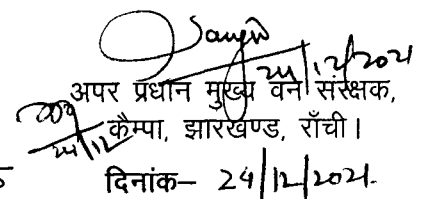 24/12/2021
अपर प्रधान मुख्य वन संरक्षक,
24/12
कैम्पा, झारखण्ड, राँची।
दिनांक– 24/12/2021.